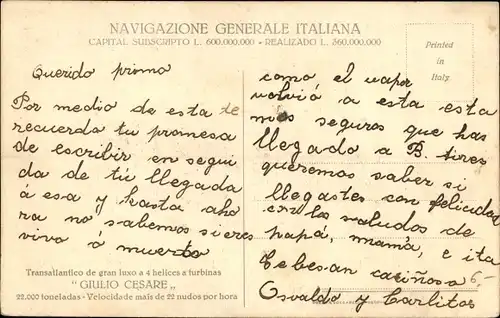 NAVIGAZIONE GENERALE ITALIANA
CAPITAL SUBSCRIPTO L. 600.000.000 - REALIZADO L. 360.000.000
Printed
in
Italy.
Querido primo
Por medio de esta te
recuerda tu promesa
de escribir en segui
da de tu llegada
á esa y hasta aho
ra no sabemos si eres
vivo o muerto
como el vapor
volvió a esta esta
mos seguros que has
llegado a B. Aires
queremos saber si
llegastes con felicidad
con los saludos de
papá, mamá, e ita
te besan cariñosa
Osvaldo y Carlitos
6.-
Transatlantico de gran luxo a 4 helices a turbinas
" GIULIO CESARE "
22.000 toneladas - Velocidade mais de 22 nudos por hora